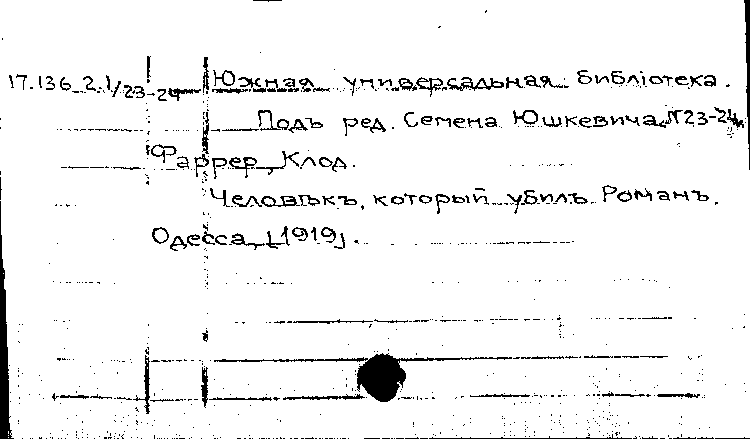 17.136_2.1/23-24 Южная универсальная библіотека.
Подъ ред. Семена Юшкевича №23-24
Фаррер, Клод.
Человѣкъ, который убилъ. Романъ.
Одесса, [1919].